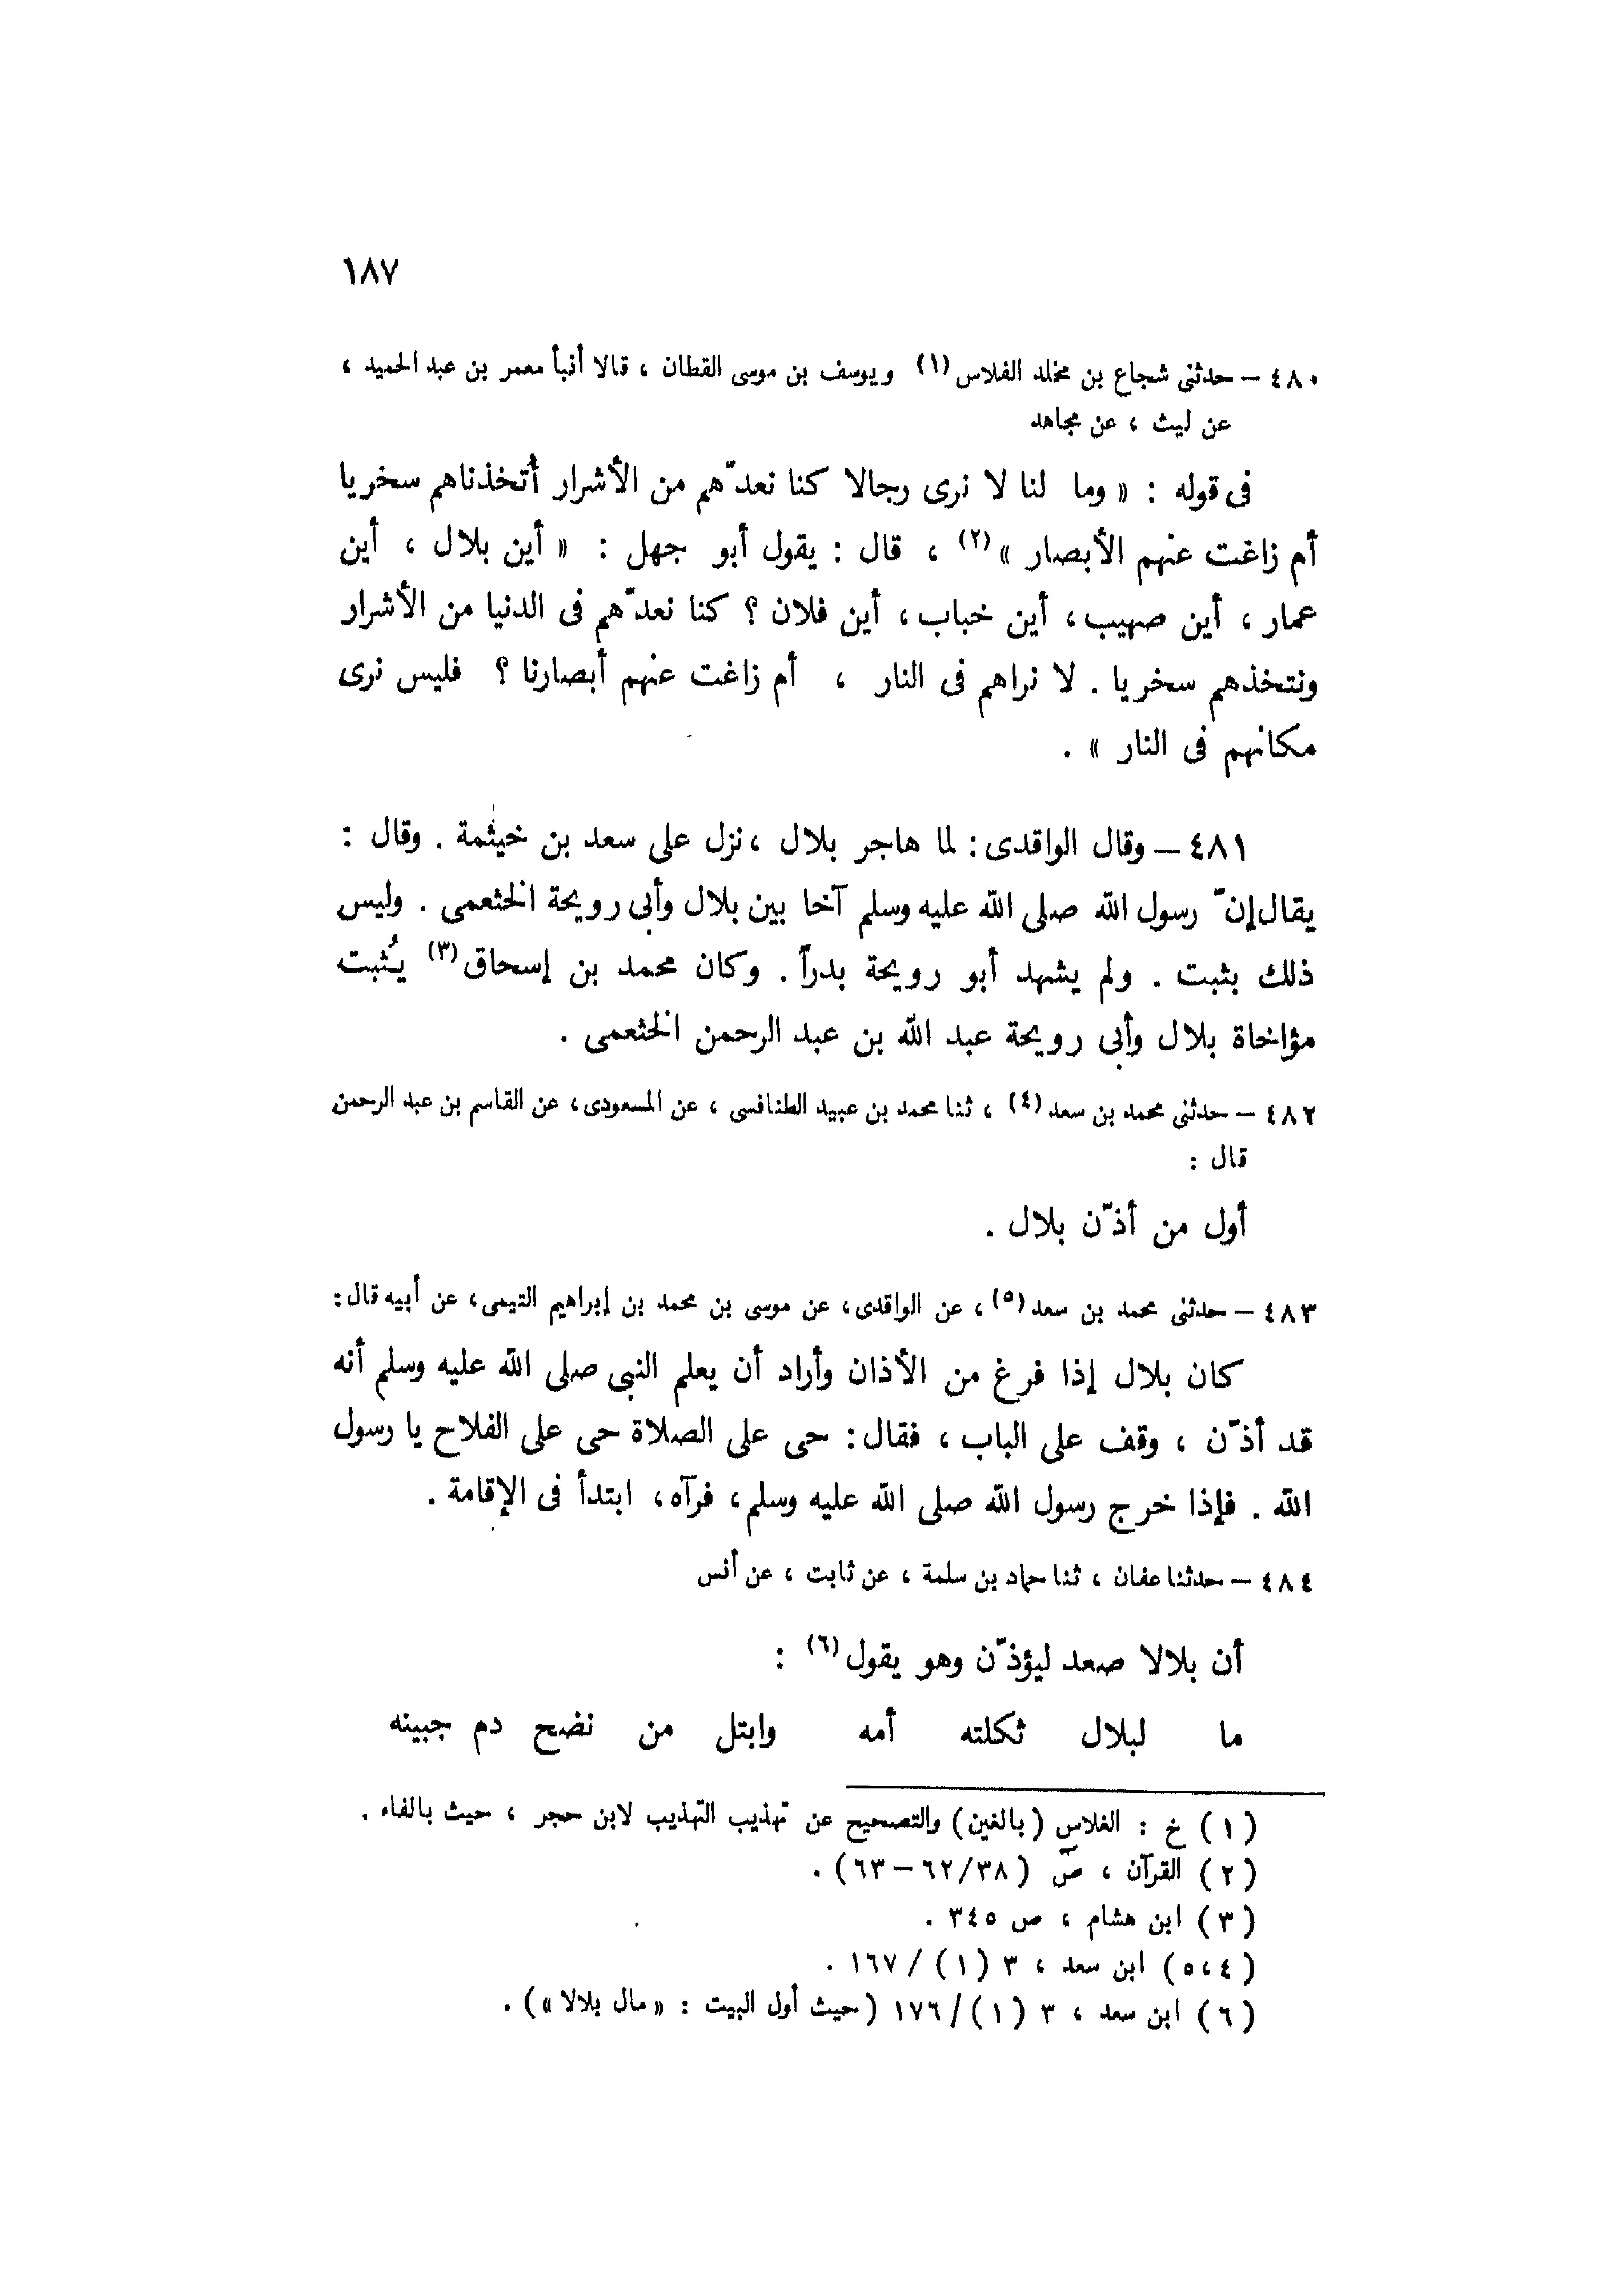 ١٨٧
٤٨٠ – حدثنى شجاع بن مخلد الفلاس (١) ويوسف بن موسى القطان ، قالا أنبأ معمر بن عبد الحميد ،
عن ليث ، عن مجاهد
فى قوله : « وما لنا لا نرى رجالا كنا نعدّهم من الأشرار أُتخذناهم سخريا
أم زاغت عنهم الأبصار » (٢) ، قال : يقول أبو جهل : « أين بلال ، أين
عمار ، أين صهيب ، أين خباب ، أين فلان ؟ كنا نعدّهم فى الدنيا من الأشرار
ونتخذهم سخريا . لا نراهم فى النار ، أم زاغت عنهم أبصارنا ؟ فليس نرى
مكانهم فى النار » .
٤٨١ – وقال الواقدى : لما هاجر بلال ، نزل على سعد بن خيثمة . وقال :
يقال إنّ رسول الله صلى الله عليه وسلم آخا بين بلال وأبى رويحة الخثعمى . وليس
ذلك بثبت . ولم يشهد أبو رويحة بدراً . وكان محمد بن إسحاق (٣) يُثبت
مؤاخاة بلال وأبى رويحة عبد الله بن عبد الرحمن الخثعمى .
٤٨٢ – حدثنى محمد بن سعد (٤) ، ثنا محمد بن عبيد الطنافسى ، عن المسعودى ، عن القاسم بن عبد الرحمن
قال :
أول من أذّن بلال .
٤٨٣ – حدثنى محمد بن سعد (٥) ، عن الواقدى ، عن موسى بن محمد بن إبراهيم التيمى ، عن أبيه قال :
كان بلال إذا فرغ من الأذان وأراد أن يعلم النبى صلى الله عليه وسلم أنه
قد أذّن ، وقف على الباب ، فقال : حى على الصلاة حى على الفلاح يا رسول
الله . فإذا خرج رسول الله صلى الله عليه وسلم ، فرآه ، ابتدأ فى الإقامة .
٤٨٤ – حدثنا عفان ، ثنا حماد بن سلمة ، عن ثابت ، عن أنس
أن بلالا صعد ليؤذّن وهو يقول (٦) :
ما لبلال ثكلته أمه وابتل من نضح دم جبينه
(١) خ : الغلاس (بالغين) والتصحيح عن تهذيب التهذيب لابن حجر ، حيث بالفاء .
(٢) القرآن ، صٓ (٣٨/٦٢–٦٣) .
(٣) ابن هشام ، ص ٣٤٥ .
(٤،٥) ابن سعد ، ٣ (١) / ١٦٧ .
(٦) ابن سعد ، ٣ (١)/ ١٧٦ (حيث أول البيت : « مال بلالا ») .